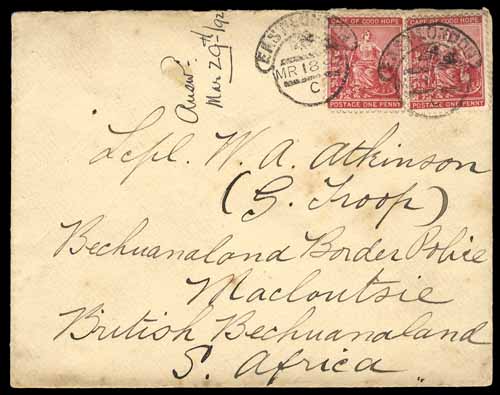 Answ:
Mar 29th/92
CAPE OF GOOD HOPE
POSTAGE ONE PENNY
CAPE OF GOOD HOPE
POSTAGE ONE PENNY
MR 18
C
Lcpl. W. A. Atkinson
(G. Troop)
Bechuanaland Border Police
Macloutsie
British Bechuanaland
S. Africa